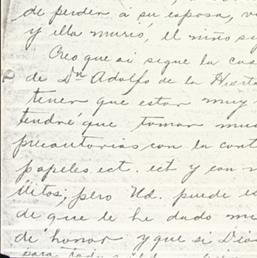 de perder á su esposa, v
y ella murio, el niño si
Creo que si sigue la cos
de Dn Adolfo de la Huerta
tener que estar muy
tendré que tomar mu
precautorias con la cont
papeles ect. ect y con
ditos; pero Ud. puede es
de que le he dado mi
de honor y que si Dios
para